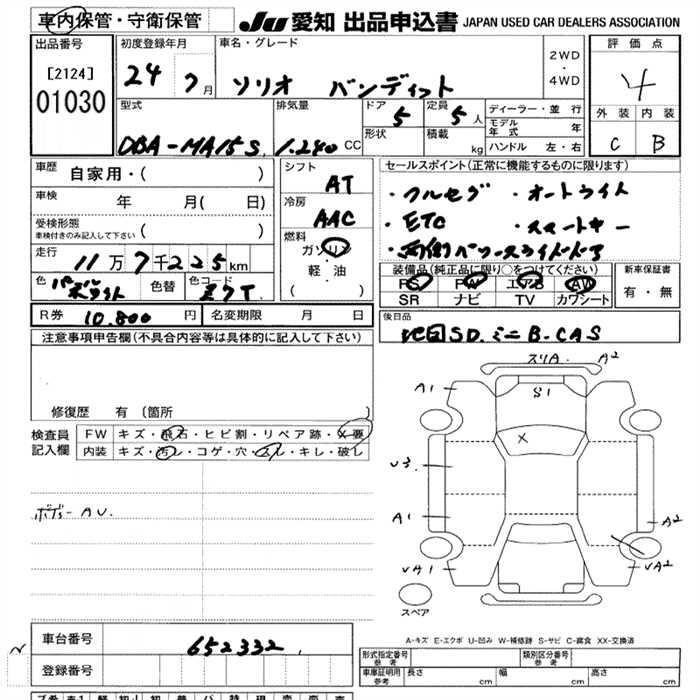 車内保管・守衛保管
JU 愛知 出品申込書 JAPAN USED CAR DEALERS ASSOCIATION
出品番号 初度登録年月 車名・グレード 2WD ・ 4WD 評価点
[2124] 01030 24 7月 ソリオ バンディット 4
型式 排気量 ドア 5 定員 5人 ディーラー・並行
モデル年式 年
外装 内装
DBA-MA15S 1.240 CC 形状 積載 kg ハンドル 左・右 C B
車歴 自家用・( )
シフト AT
セールスポイント(正常に機能するものに限ります)
車検 年 月( 日)
冷房 AAC
・フルセグ ・オートライト
受検形態 車検付きのみ記入して下さい ( )
・ETC ・スマートキー
燃料 ガソリン・軽・油 ( )
・両側パワースライドドア
走行 11万7千225km
装備品(純正品に限り○をつけてください) 新車保証書
色 パールホワイト 色替 色コード ZVT.
PS PW エアB AW
SR ナビ TV カワシート
有・無
R券 10.800円 名変期限 月 日
後日品
地図SD.ミニB-CAS
注意事項申告欄(不具合内容等は具体的に記入して下さい)
修復歴 有(箇所 )
検査員記入欄 FW キズ・飛石・ヒビ割・リペア跡・X要
内装 キズ・汚レ・コゲ・穴・スレ・キレ・破レ
ボデーAU.
スリA. A2
A1 S1
X
U3
A1 A2
UA1 UA2
スペア
A-キズ E-エクボ U-凹み W-補修跡 S-サビ C-腐食 XX-交換済
車台番号 652332
登録番号
形式指定番号 参考 類別区分番号 参考
車庫証明用 参考 長さ cm 幅 cm 高さ cm